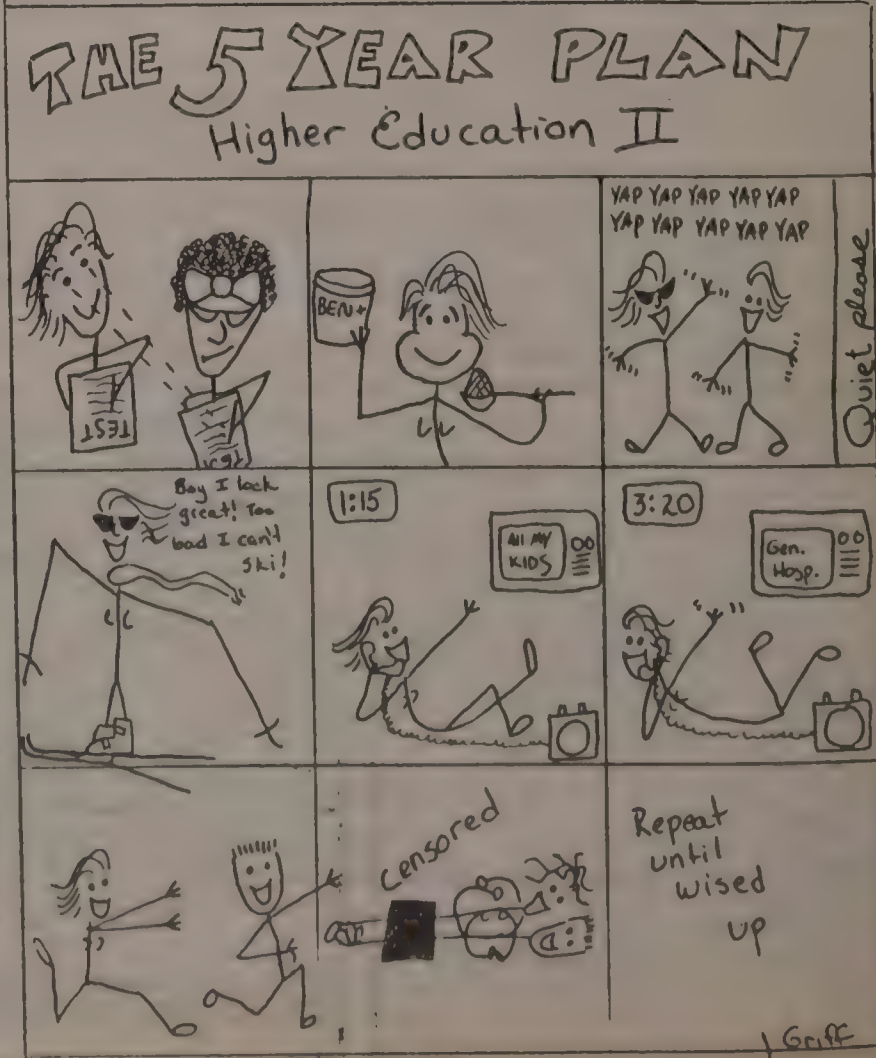 THE 5 YEAR PLAN
Higher Education II
TEST
BEN+
YAP YAP YAP YAP YAP
YAP YAP YAP YAP YAP
Quiet please
Boy I look
great! Too
bad I can't
ski!
1:15
All MY
KIDS
3:20
Gen.
Hosp.
Censored
Repeat
until
wised
up
Griff